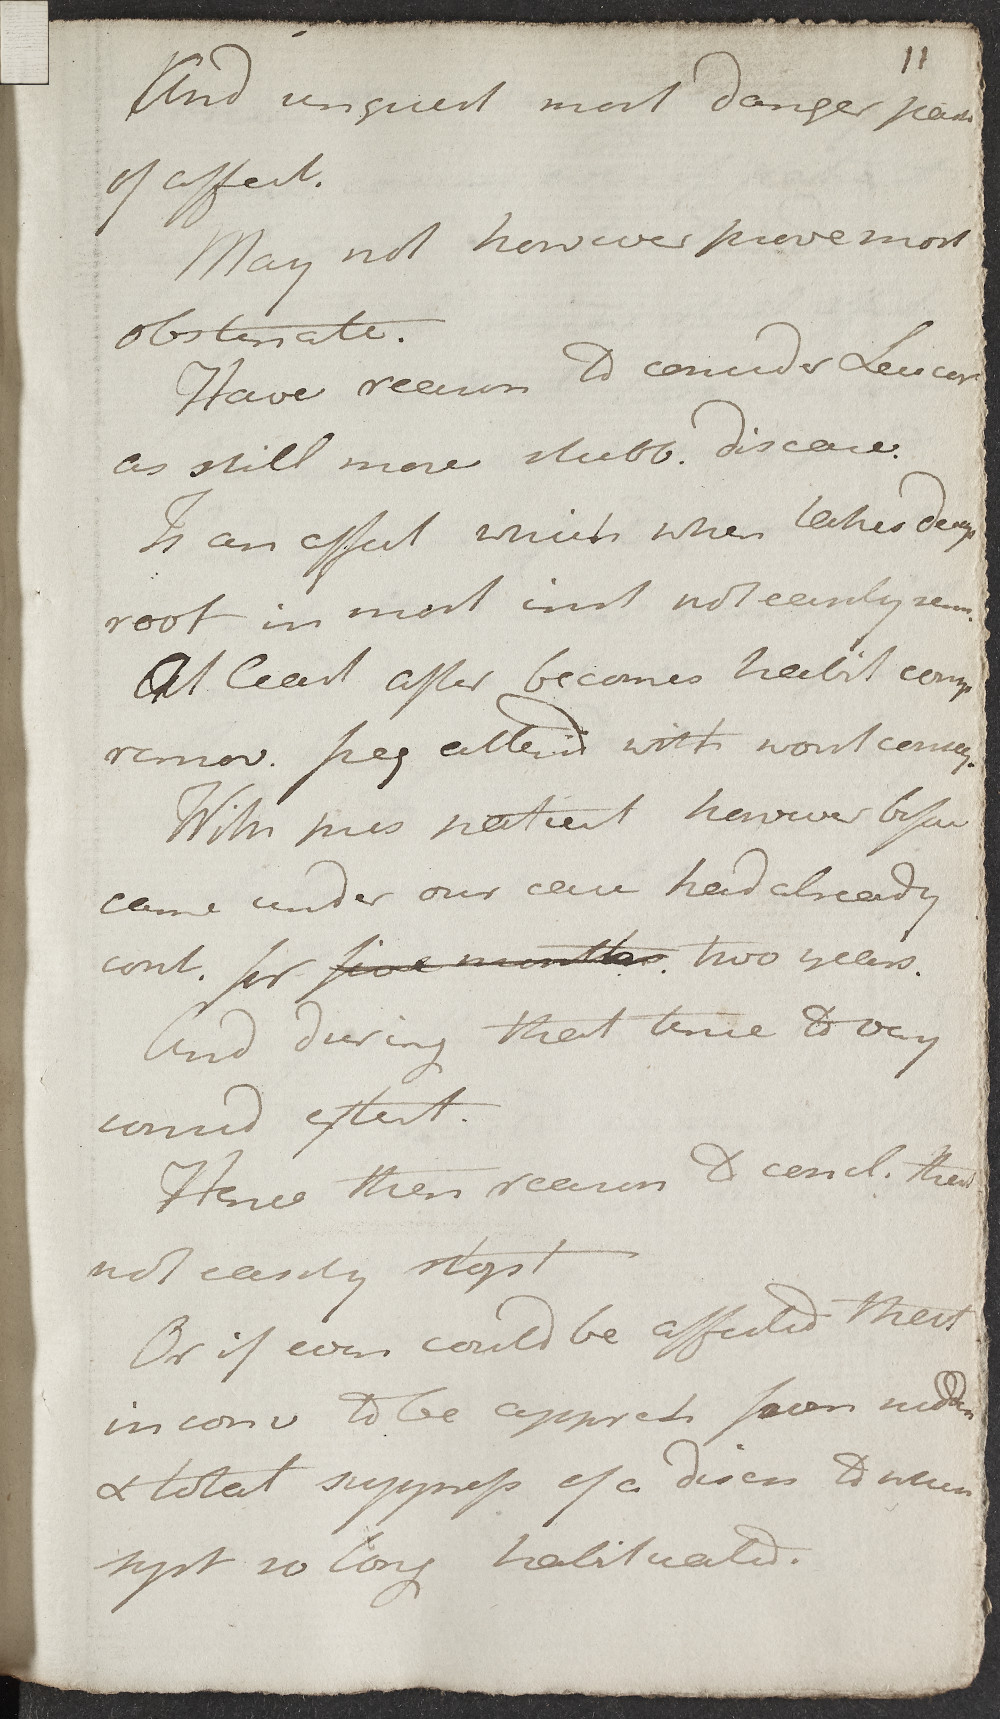 11
And unquest most danger part
of affect.
May not however prove most
obstinate.
Have reason to consider Leucor
as still more stubb. disease.
Is an affect which when takes deep
root in most inst not easily rem.
At least after becomes habit comp
remov. freq attend with worst conseq.
With pres patient however before
came under our care had already
cont. for five months. two years.
And during that time to very
consid extent.
Hence then reason to concl. that
not easily stopt
Or if even could be affected that
inconv to be appreh from sudden
& total suppress of a disch to which
syst so long habituated.